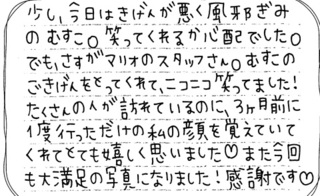 少し、今日はきげんが悪く風邪ぎみ
のむすこ。笑ってくれるか心配でした。
でも、さすがマリオのスタッフさん。むすこの
ごきげんをとってくれて、ニコニコ笑ってました!
たくさんの人が訪れているのに、3ヶ月前に
1度行っただけの私の顔を覚えていて
くれてとても嬉しく思いました♡また今回
も大満足の写真になりました!感謝です♡